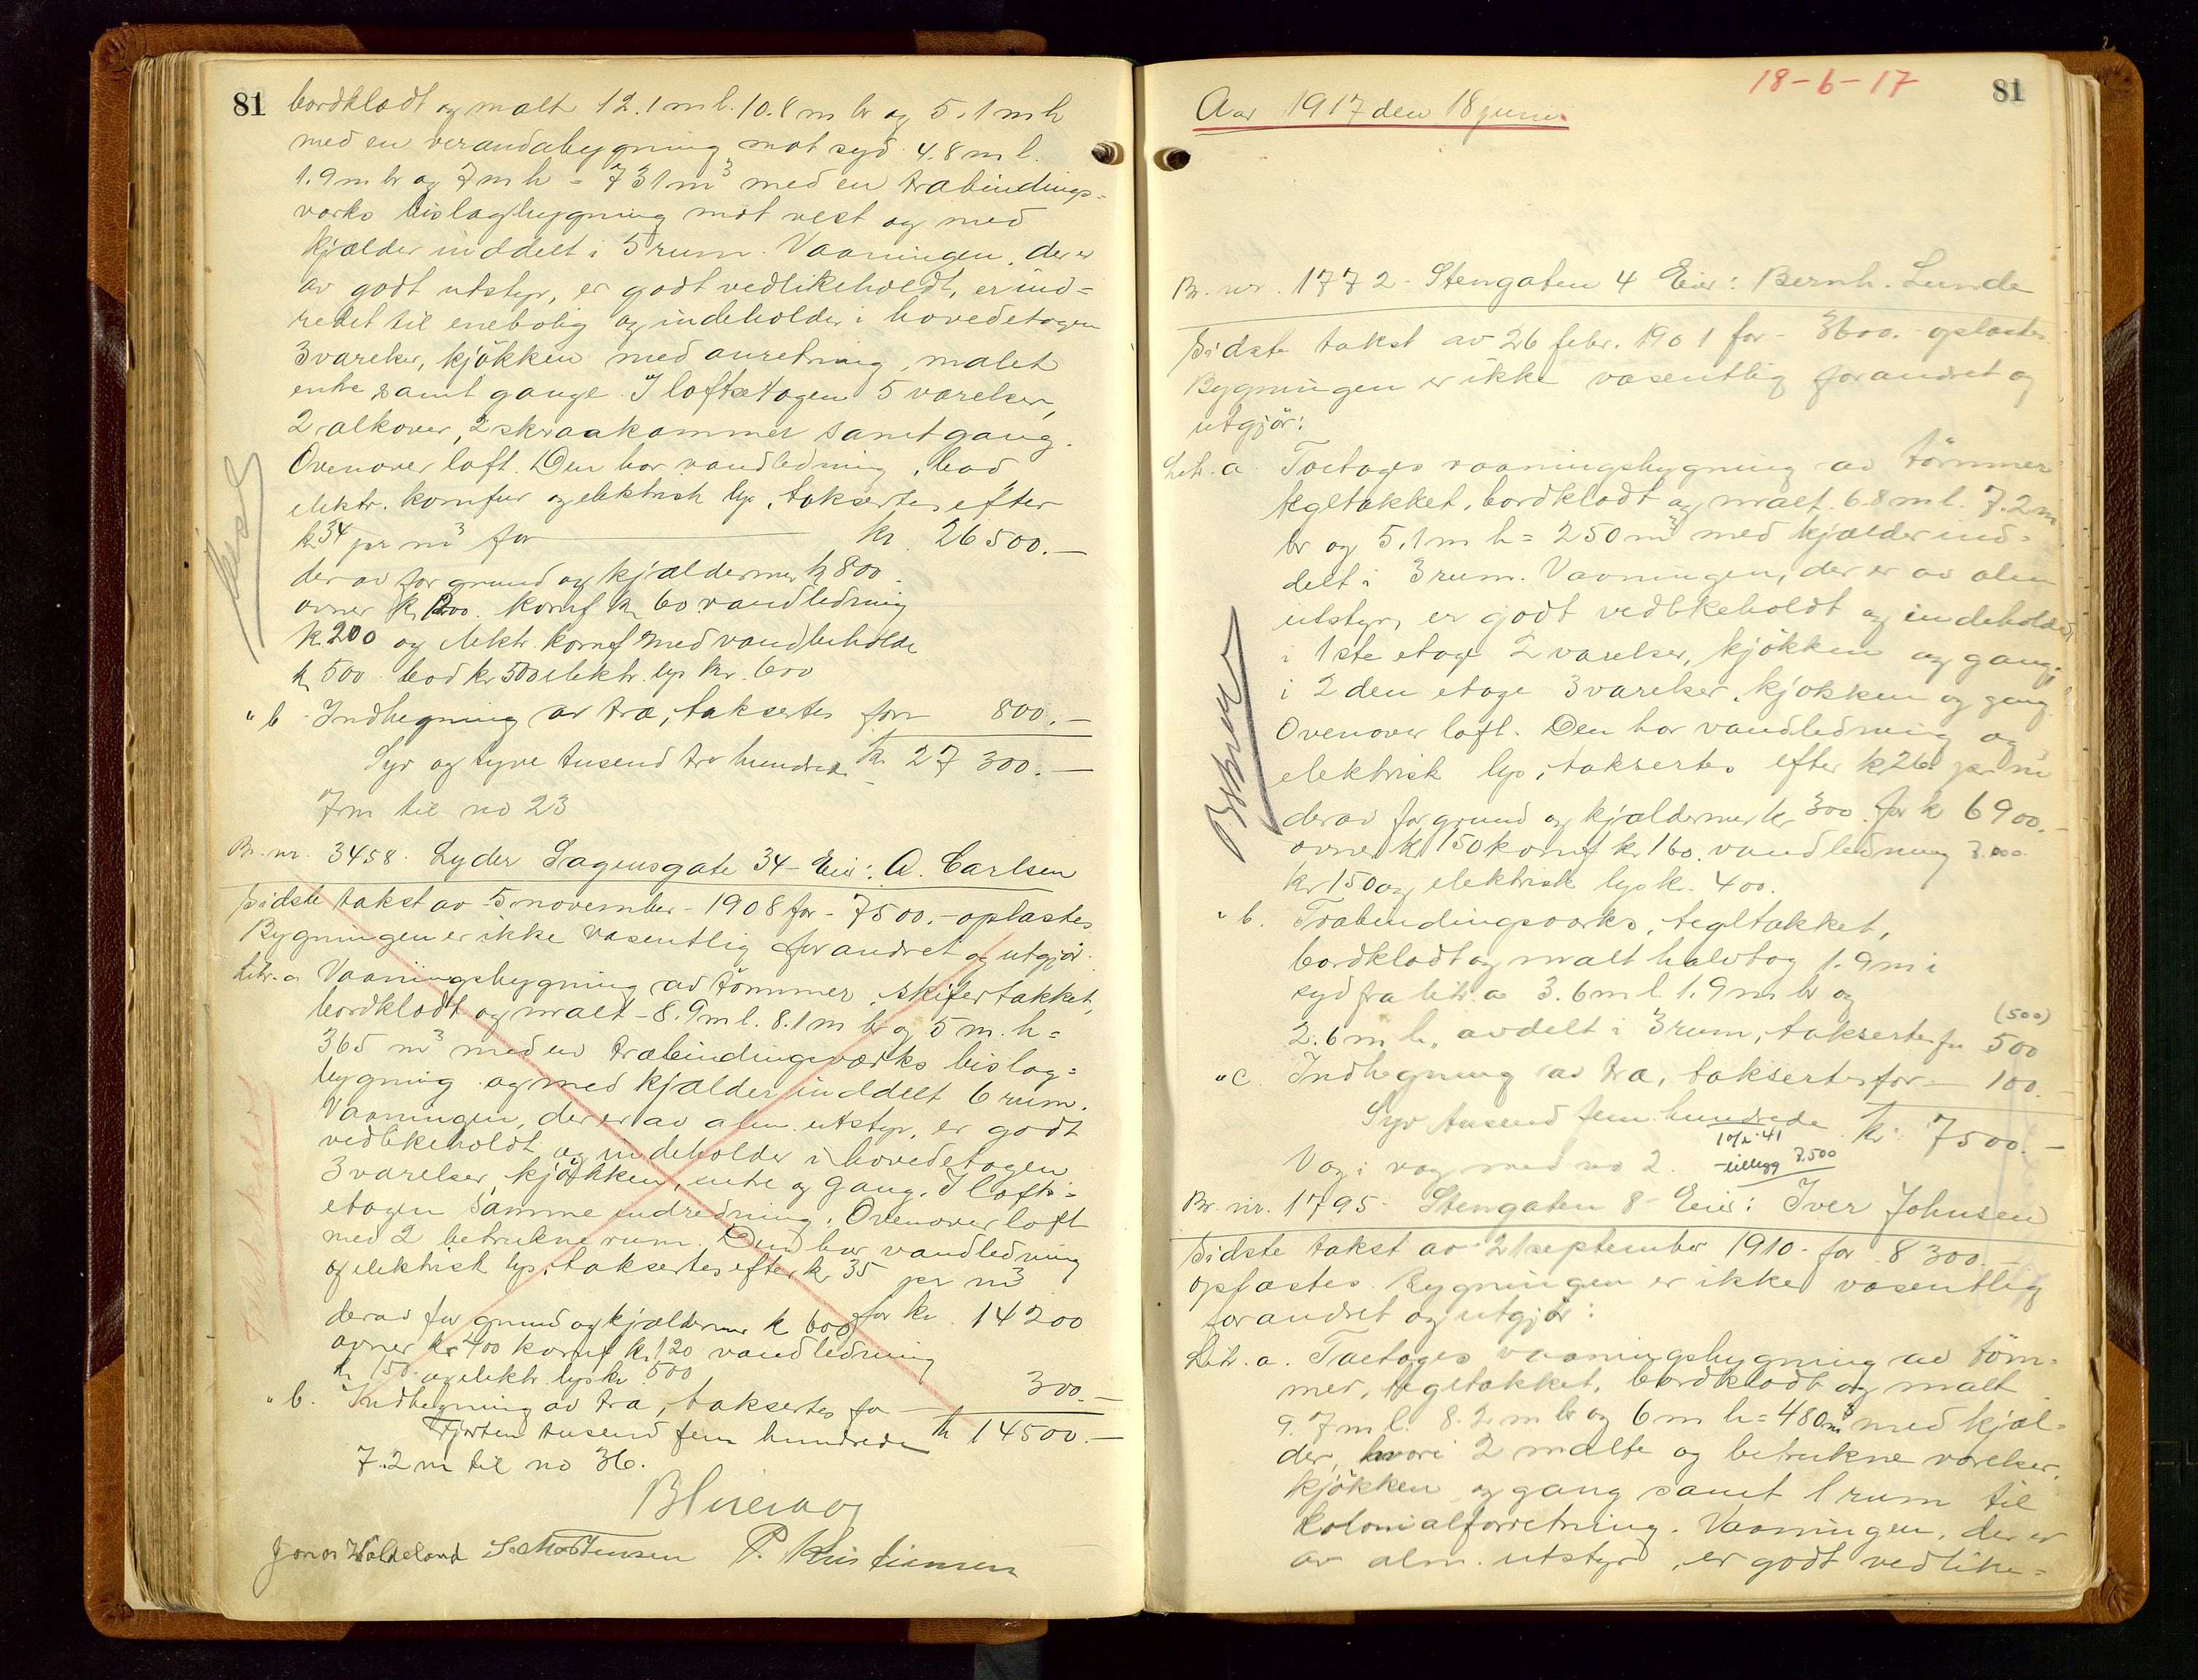 81
bordklædt og malt 12.1 m l. 10.8 m br og 5.1 m h
med en verandabygning mot syd 4.8 m l.
1.9 m br og 7 m h = 731 m³ med en træbindings-
værks bislagbygning mot vest og med
kjælder inddelt i 5 rum. Vaaningen, der er
av godt utstyr, er godt vedlikeholdt, er ind=
redet til enebolig og indeholder i hovedetagen
3 værelser, kjökken med anretning, malet
entre samt gange. I loftsetagen 5 værelser,
2 alkover, 2 skraakammer samt gang.
Ovenover loft. Den har vandledning, bad
elektr. komfur og elektrisk lys, taksertes efter
kr 34 pr m³ for kr. 26500.—
derav for grund og kjældermur kr 800.
ovner kr 1200. komf kr 60 vandledning
kr. 200 og elektr. komf med vandbeholder
kr 500 bad kr 500 elektr. lys kr. 600
" b Indhegning av træ, taksertes for 800.—
Syv og tyve tusend tre hundrede kr. 27 300.—
7 m til no 23
Br. nr. 3458. Lyder Sagensgate 34 - Eier: A. Carlsen
Sidste takst av 5 november - 1908 for - 7500.- oplæstes
Bygningen er ikke væsentlig forandret og utgjør:
Litr. a Vaaningsbygning av tömmer, skifertakket,
bordklædt og malt - 8.9 m l. 8.1 m br og 5 m. h =
365 m³ med en træbindingsværks bislag=
bygning og med kjælder inddelt 6 rum.
Vaaningen, der er av alm. utstyr, er godt
vedlikeholdt og indeholder i hovedetagen
3 værelser, kjökken, entre og gang. I lofts=
etagen samme indredning. Ovenover loft
med 2 betrukne rum. Den har vandledning
og elektrisk lys, taksertes efter kr 35 pr m³
for kr. 14200
derav for grund og kjældermur kr 600
ovner kr 400 komf kr. 120 vandledning
kr 150 og elektr. lys kr 500
" b. Indhegning av træ, taksertes for 300.—
Fjorten tusend fem hundrede kr 14500.—
7.2 m til no 36.
Jonas Hålheland S. Mortensen P. Kristiansen
18-6-17
81
Aar 1917 den 18 juni.
Br. nr. 1772 - Stengaten 4 Eier: Bernh. Lunde
Sidste takst av 26 febr. 1901 for - 3600.- oplæstes.
Bygningen er ikke væsentlig forandret og
utgjör:
Litr. a. Toetages vaaningsbygning av tömmer
tegltakket, bordklædt og malt. 6.8 m l. 7.2 m
br og 5.1 m h = 250 m³ med kjælder ind=
delt i 3 rum. Vaaningen, der er av alm
utstyr, er godt vedlikeholdt og indeholder
i 1ste etage 2 værelser, kjökken og gang,
i 2den etage 3 værelser, kjökken og gang
Ovenover loft. Den har vandledning og
elektrisk lys, taksertes efter kr 26 pr m³
derav for grund og kjældermur kr 300. for kr 6900.—
ovner kr 150 komf kr 160. vandledning
kr 150 og elektrisk lys kr. 400.
" b. Træbindingsværks, tegltakket,
bordklædt og malt halvtag 1.9 m i
syd fra litr. a 3.6 m l. 1.9 m br og
(500)
2.6 m h, avdelt i 3 rum, taksertes for 500
" c. Indhegning av træ, taksertes for - 100.—
Syv tusend fem hundrede kr. 7500.—
Væg i væg med no 2. tillegg 7.500
Br. nr. 1795 - Stengaten 8 - Eier: Iver Johnsen
Sidste takst av 21 september 1910 - for 8300.—
oplæstes. Bygningen er ikke væsentlig
forandret og utgjör:
Litr. a. Toetages vaaningsbygning av töm=
mer, tegltakket, bordklædt og malt
9.7 m l. 8.2 m br og 6 m h = 480 m³ med kjæl=
der, hvori 2 malte og betrukne værelser,
kjökken og gang samt 1 rum til
kolonialforretning. Vaaningen, der er
av alm. utstyr, er godt vedlike=